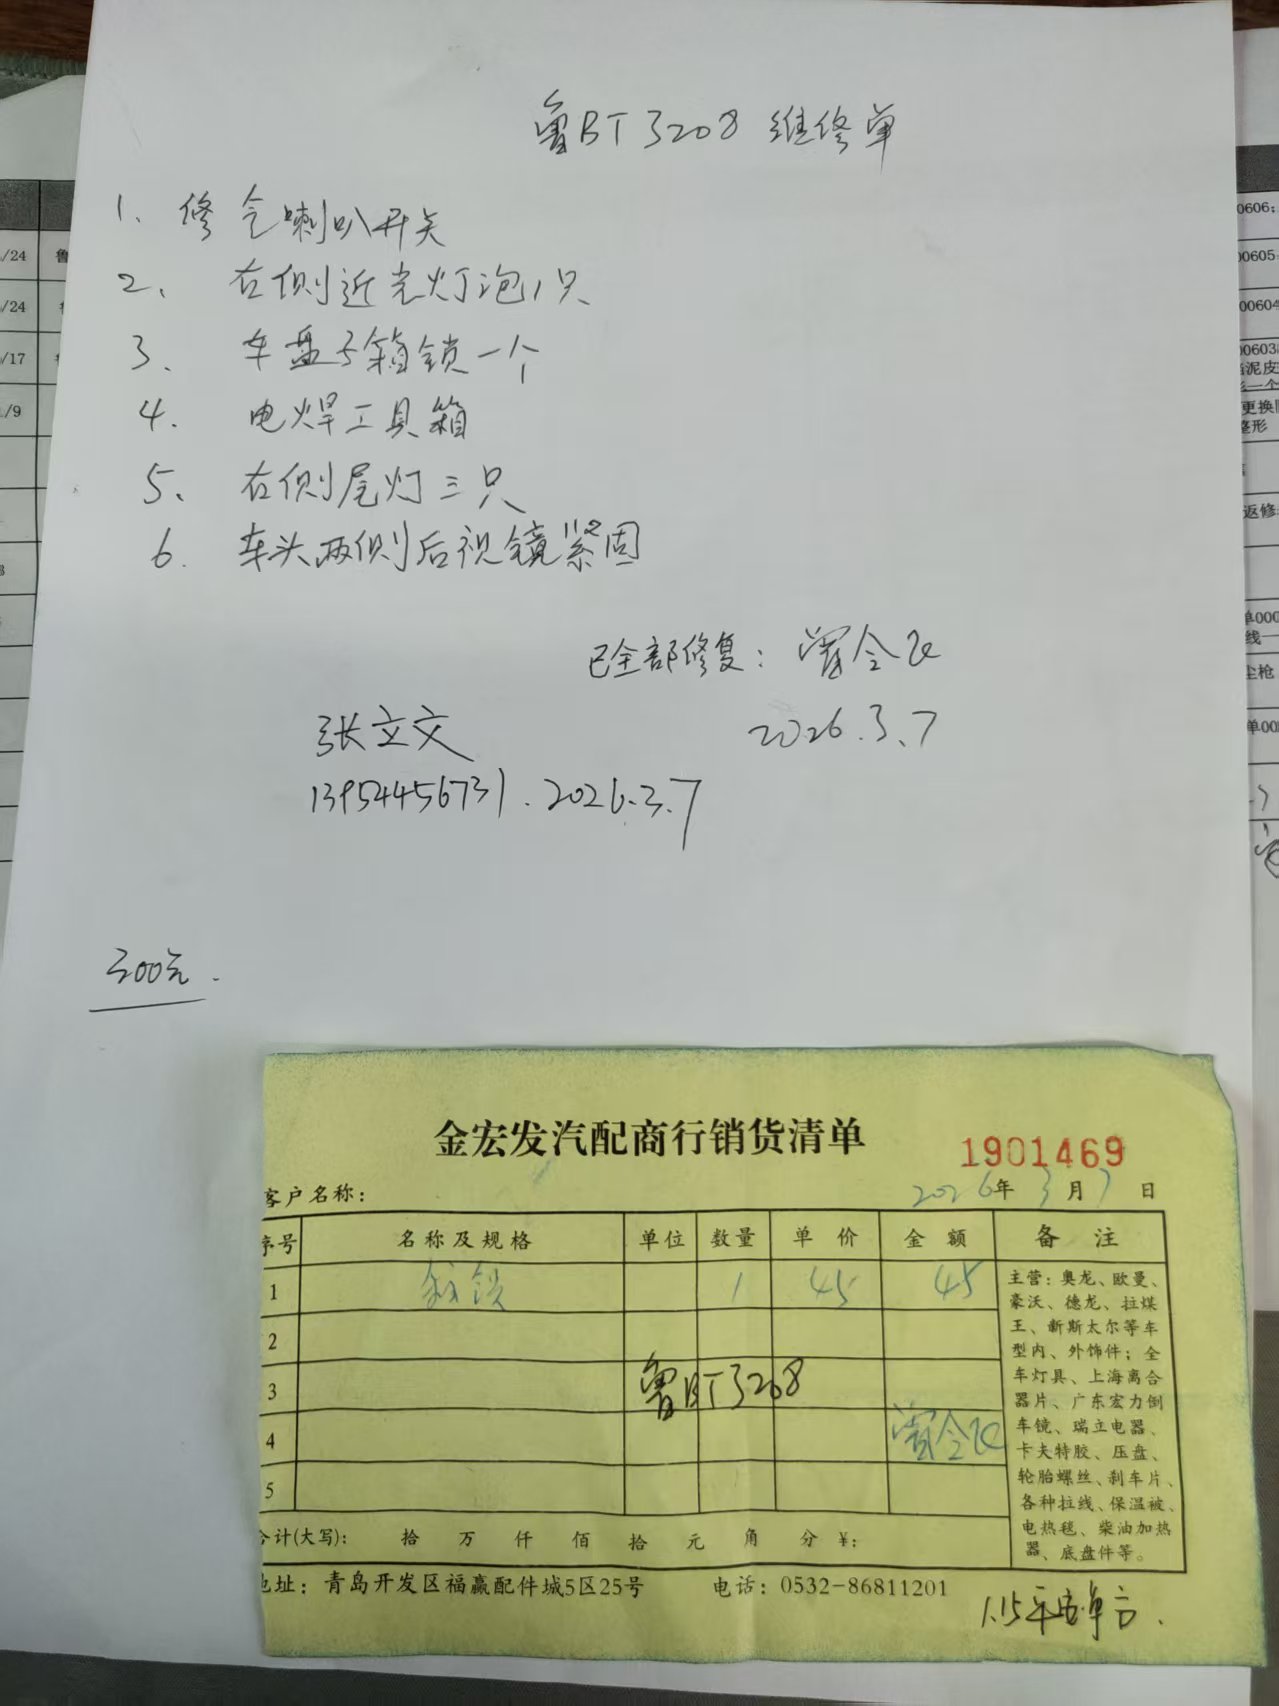 鲁BT3208 维修单
1、修气喇叭开关
2、右侧近光灯泡1只
3、车盘子箱锁一个
4、电焊工具箱
5、右侧尾灯三只
6、车头两侧后视镜紧固
已全部修复：
2026.3.7
张立文
13954456731.2026.3.7
300元.
金宏发汽配商行销货清单
1901469
客户名称：
2026年3月7日
序号 名称及规格 单位 数量 单价 金额 备注
1 锁 1 45 45
2
3 鲁BT3208
4
5
主营：奥龙、欧曼、
豪沃、德龙、拉煤
王、新斯太尔等车
型内、外饰件；全
车灯具、上海离合
器片、广东宏力倒
车镜、瑞立电器、
卡夫特胶、压盘、
轮胎螺丝、刹车片、
各种拉线、保温被、
电热毯、柴油加热
器、底盘件等。
合计(大写)： 拾 万 仟 佰 拾 元 角 分 ¥：
地址：青岛开发区福赢配件城5区25号 电话：0532-86811201
/24 鲁
/24
/17
/9
00606;
00605
00604
00603
泥皮
一个
更换
整形
返修
单000
线一
尘枪
单00